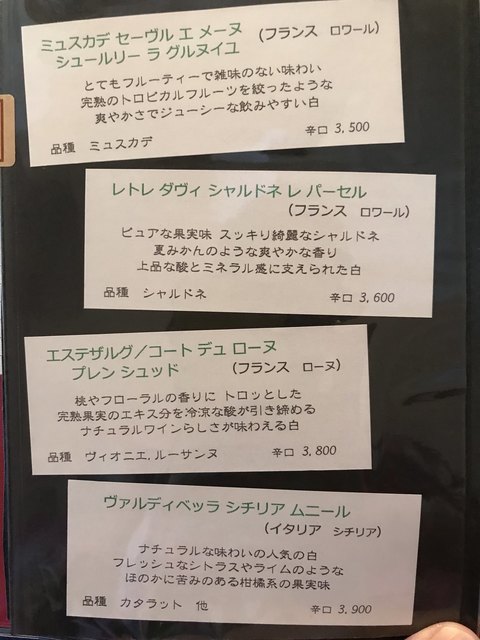 ミュスカデ セーヴル エ メーヌ (フランス ロワール)
シュールリー ラ グルヌイユ
とてもフルーティーで雑味のない味わい
完熟のトロピカルフルーツを絞ったような
爽やかさでジューシーな飲みやすい白
品種 ミュスカデ 辛口 3,500
レトレ ダヴィ シャルドネ レ パーセル
(フランス ロワール)
ピュアな果実味 スッキリ綺麗なシャルドネ
夏みかんのような爽やかな香り
上品な酸とミネラル感に支えられた白
品種 シャルドネ 辛口 3,600
エステザルグ/コート デュ ローヌ
プレン シュッド (フランス ローヌ)
桃やフローラルの香りに トロッとした
完熟果実のエキス分を冷涼な酸が引き締める
ナチュラルワインらしさが味わえる白
品種 ヴィオニエ,ルーサンヌ 辛口 3,800
ヴァルディベッラ シチリア ムニール
(イタリア シチリア)
ナチュラルな味わいの人気の白
フレッシュなシトラスやライムのような
ほのかに苦みのある柑橘系の果実味
品種 カタラット 他 辛口 3,900